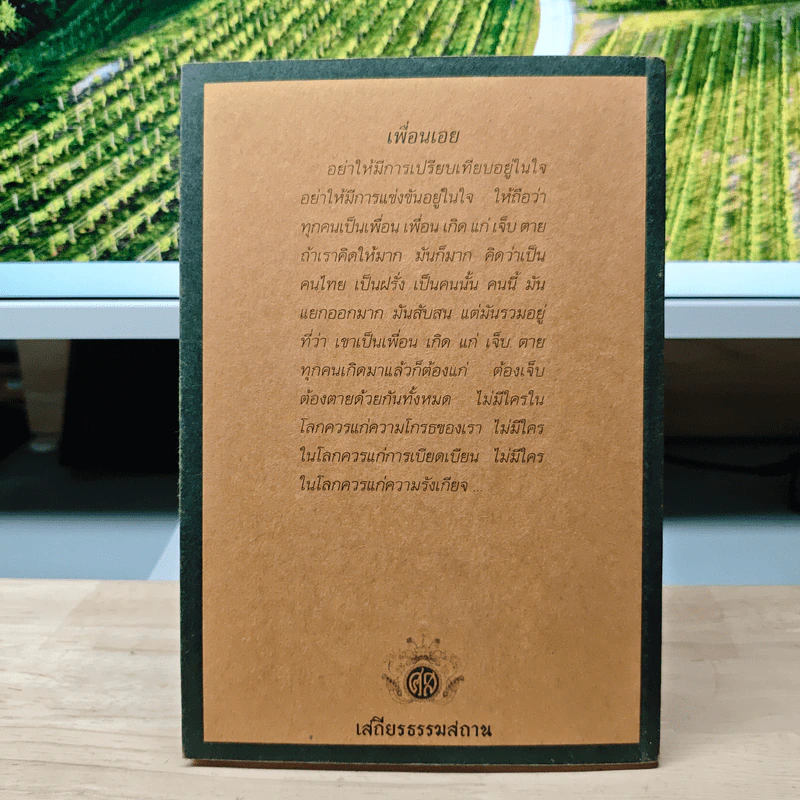 เพื่อนเอย
อย่าให้มีการเปรียบเทียบอยู่ในใจ
อย่าให้มีการแข่งขันอยู่ในใจ ให้ถือว่า
ทุกคนเป็นเพื่อน เพื่อน เกิด แก่ เจ็บ ตาย
ถ้าเราคิดให้มาก มันก็มาก คิดว่าเป็น
คนไทย เป็นฝรั่ง เป็นคนนั้น คนนี้ มัน
แยกออกมาก มันสับสน แต่มันรวมอยู่
ที่ว่า เขาเป็นเพื่อน เกิด แก่ เจ็บ ตาย
ทุกคนเกิดมาแล้วก็ต้องแก่ ต้องเจ็บ
ต้องตายด้วยกันทั้งหมด ไม่มีใครใน
โลกควรแก่ความโกรธของเรา ไม่มีใคร
ในโลกควรแก่การเบียดเบียน ไม่มีใคร
ในโลกควรแก่ความรังเกียจ ...
เสถียรธรรมสถาน